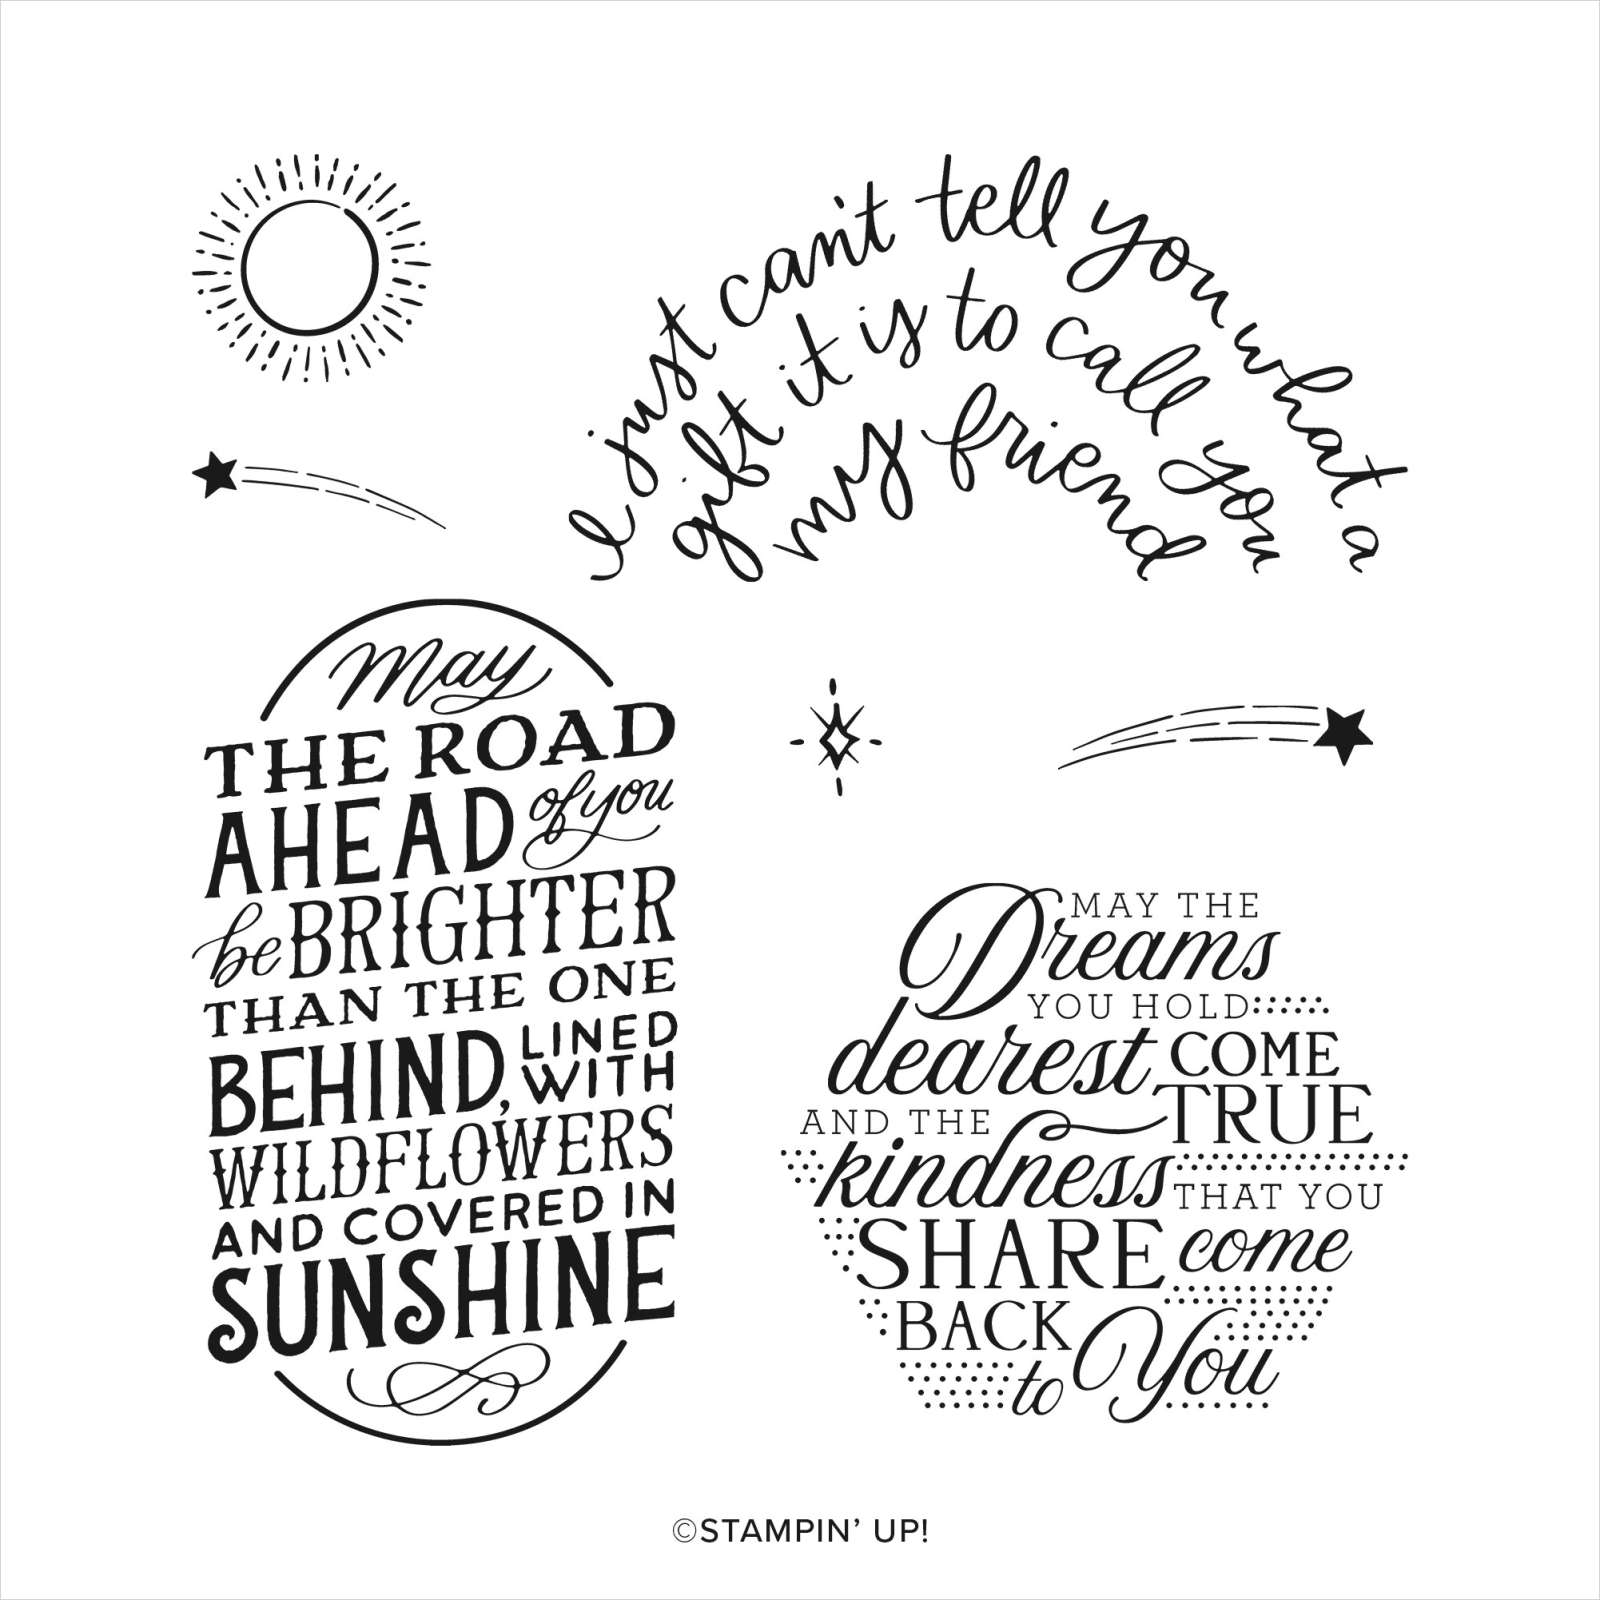 I just can't tell you what a
gift it is to call you
my friend
May
THE ROAD
AHEAD of you
be BRIGHTER
THAN THE ONE
BEHIND, LINED
WITH
WILDFLOWERS
AND COVERED IN
SUNSHINE
MAY THE
Dreams
YOU HOLD
dearest COME
TRUE
AND THE
kindness
THAT YOU
SHARE come
BACK
to You
©STAMPIN' UP!